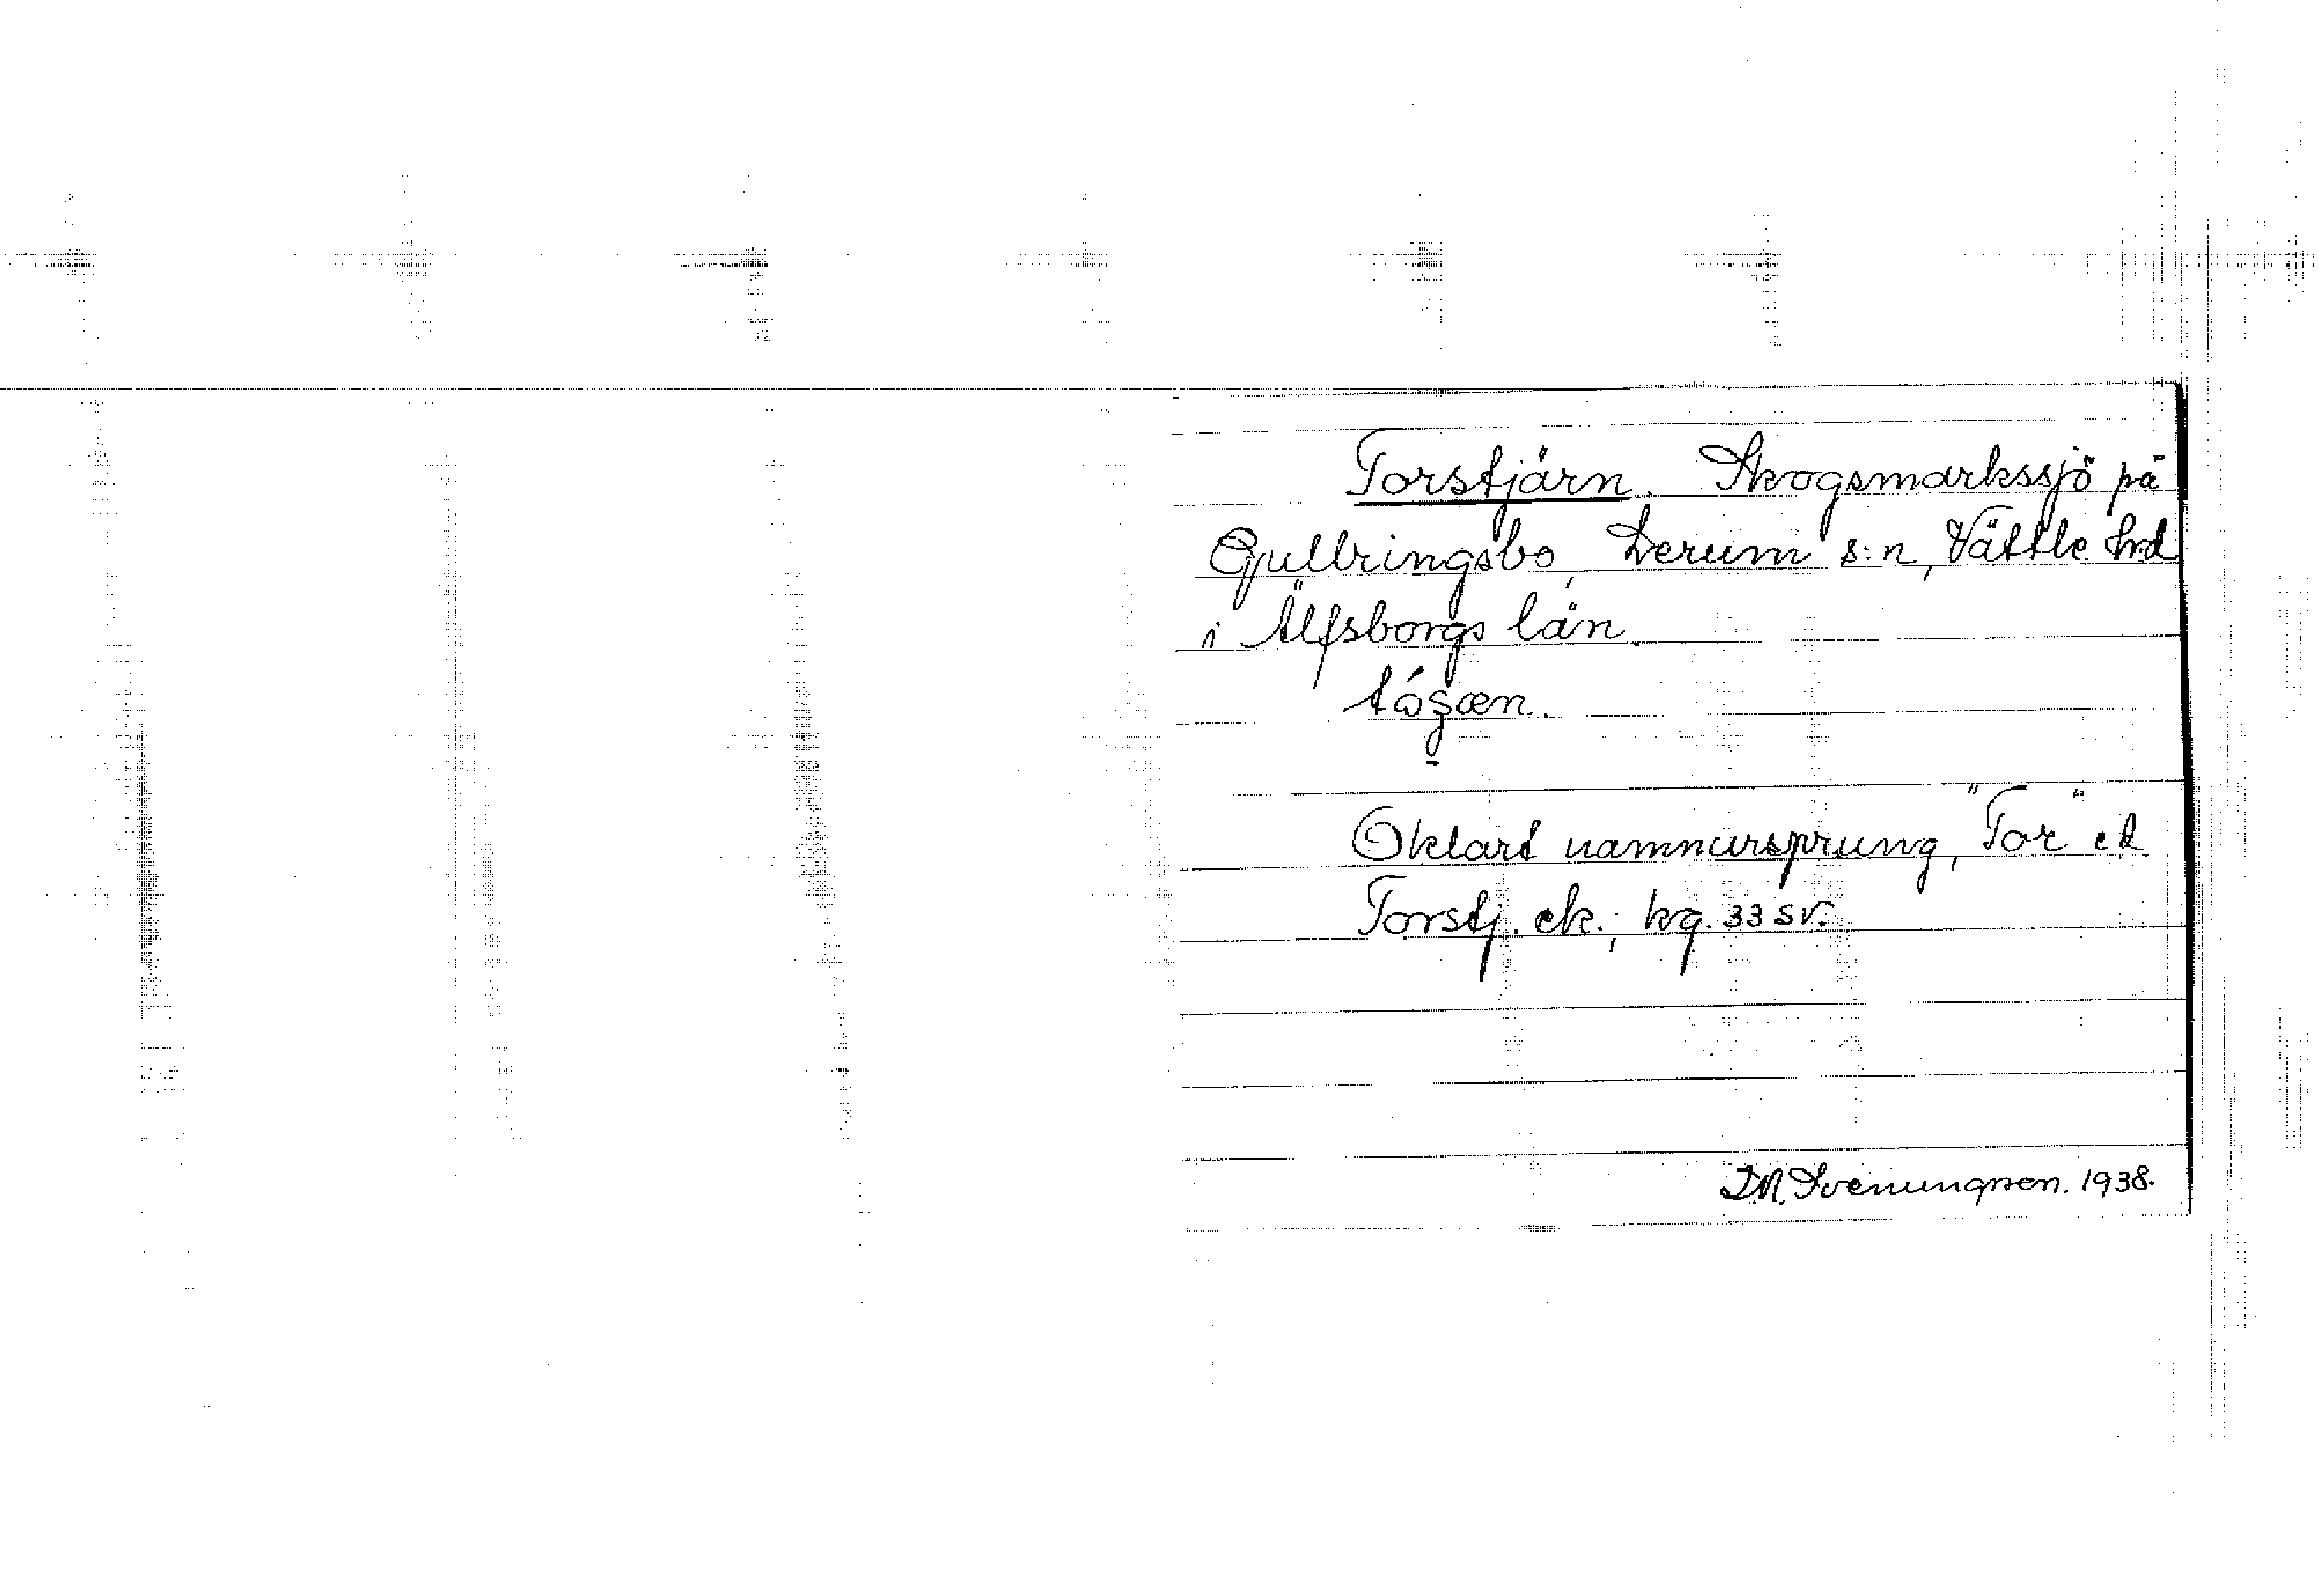 Torstjärn. Skogsmarkssjö på
Gullringsbo, Lerum s:n, Vättle hrd
i Älfsborgs län.
Oklart namnursprung, "Tor" el.
Torstj. ek.; kg. 33 sv.
Svenungsson. 1938.